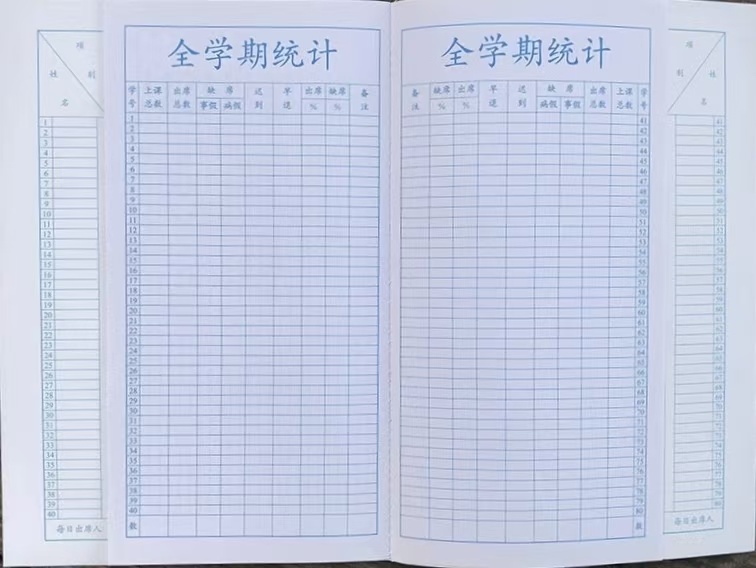 项
姓 别
名
1
2
3
4
5
6
7
8
9
10
11
12
13
14
15
16
17
18
19
20
21
22
23
24
25
26
27
28
29
30
31
32
33
34
35
36
37
38
39
40
每日出席人
全学期统计
学 上课 出席 缺 席 迟 早 出席 缺席 备
号 总数 总数 事假 病假 到 退 % % 注
1
2
3
4
5
6
7
8
9
10
11
12
13
14
15
16
17
18
19
20
21
22
23
24
25
26
27
28
29
30
31
32
33
34
35
36
37
38
39
40
数
全学期统计
备 缺席 出席 早 迟 缺 席 出席 上课 学
注 % % 退 到 病假 事假 总数 总数 号
41
42
43
44
45
46
47
48
49
50
51
52
53
54
55
56
57
58
59
60
61
62
63
64
65
66
67
68
69
70
71
72
73
74
75
76
77
78
79
80
数
项
别 姓
名
41
42
43
44
45
46
47
48
49
50
51
52
53
54
55
56
57
58
59
60
61
62
63
64
65
66
67
68
69
70
71
72
73
74
75
76
77
78
79
80
每日出席人